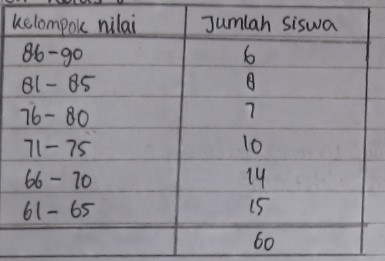 Kelompok nilai Jumlah siswa
86-90 6
81-85 8
76-80 7
71-75 10
66-70 14
61-65 15
60